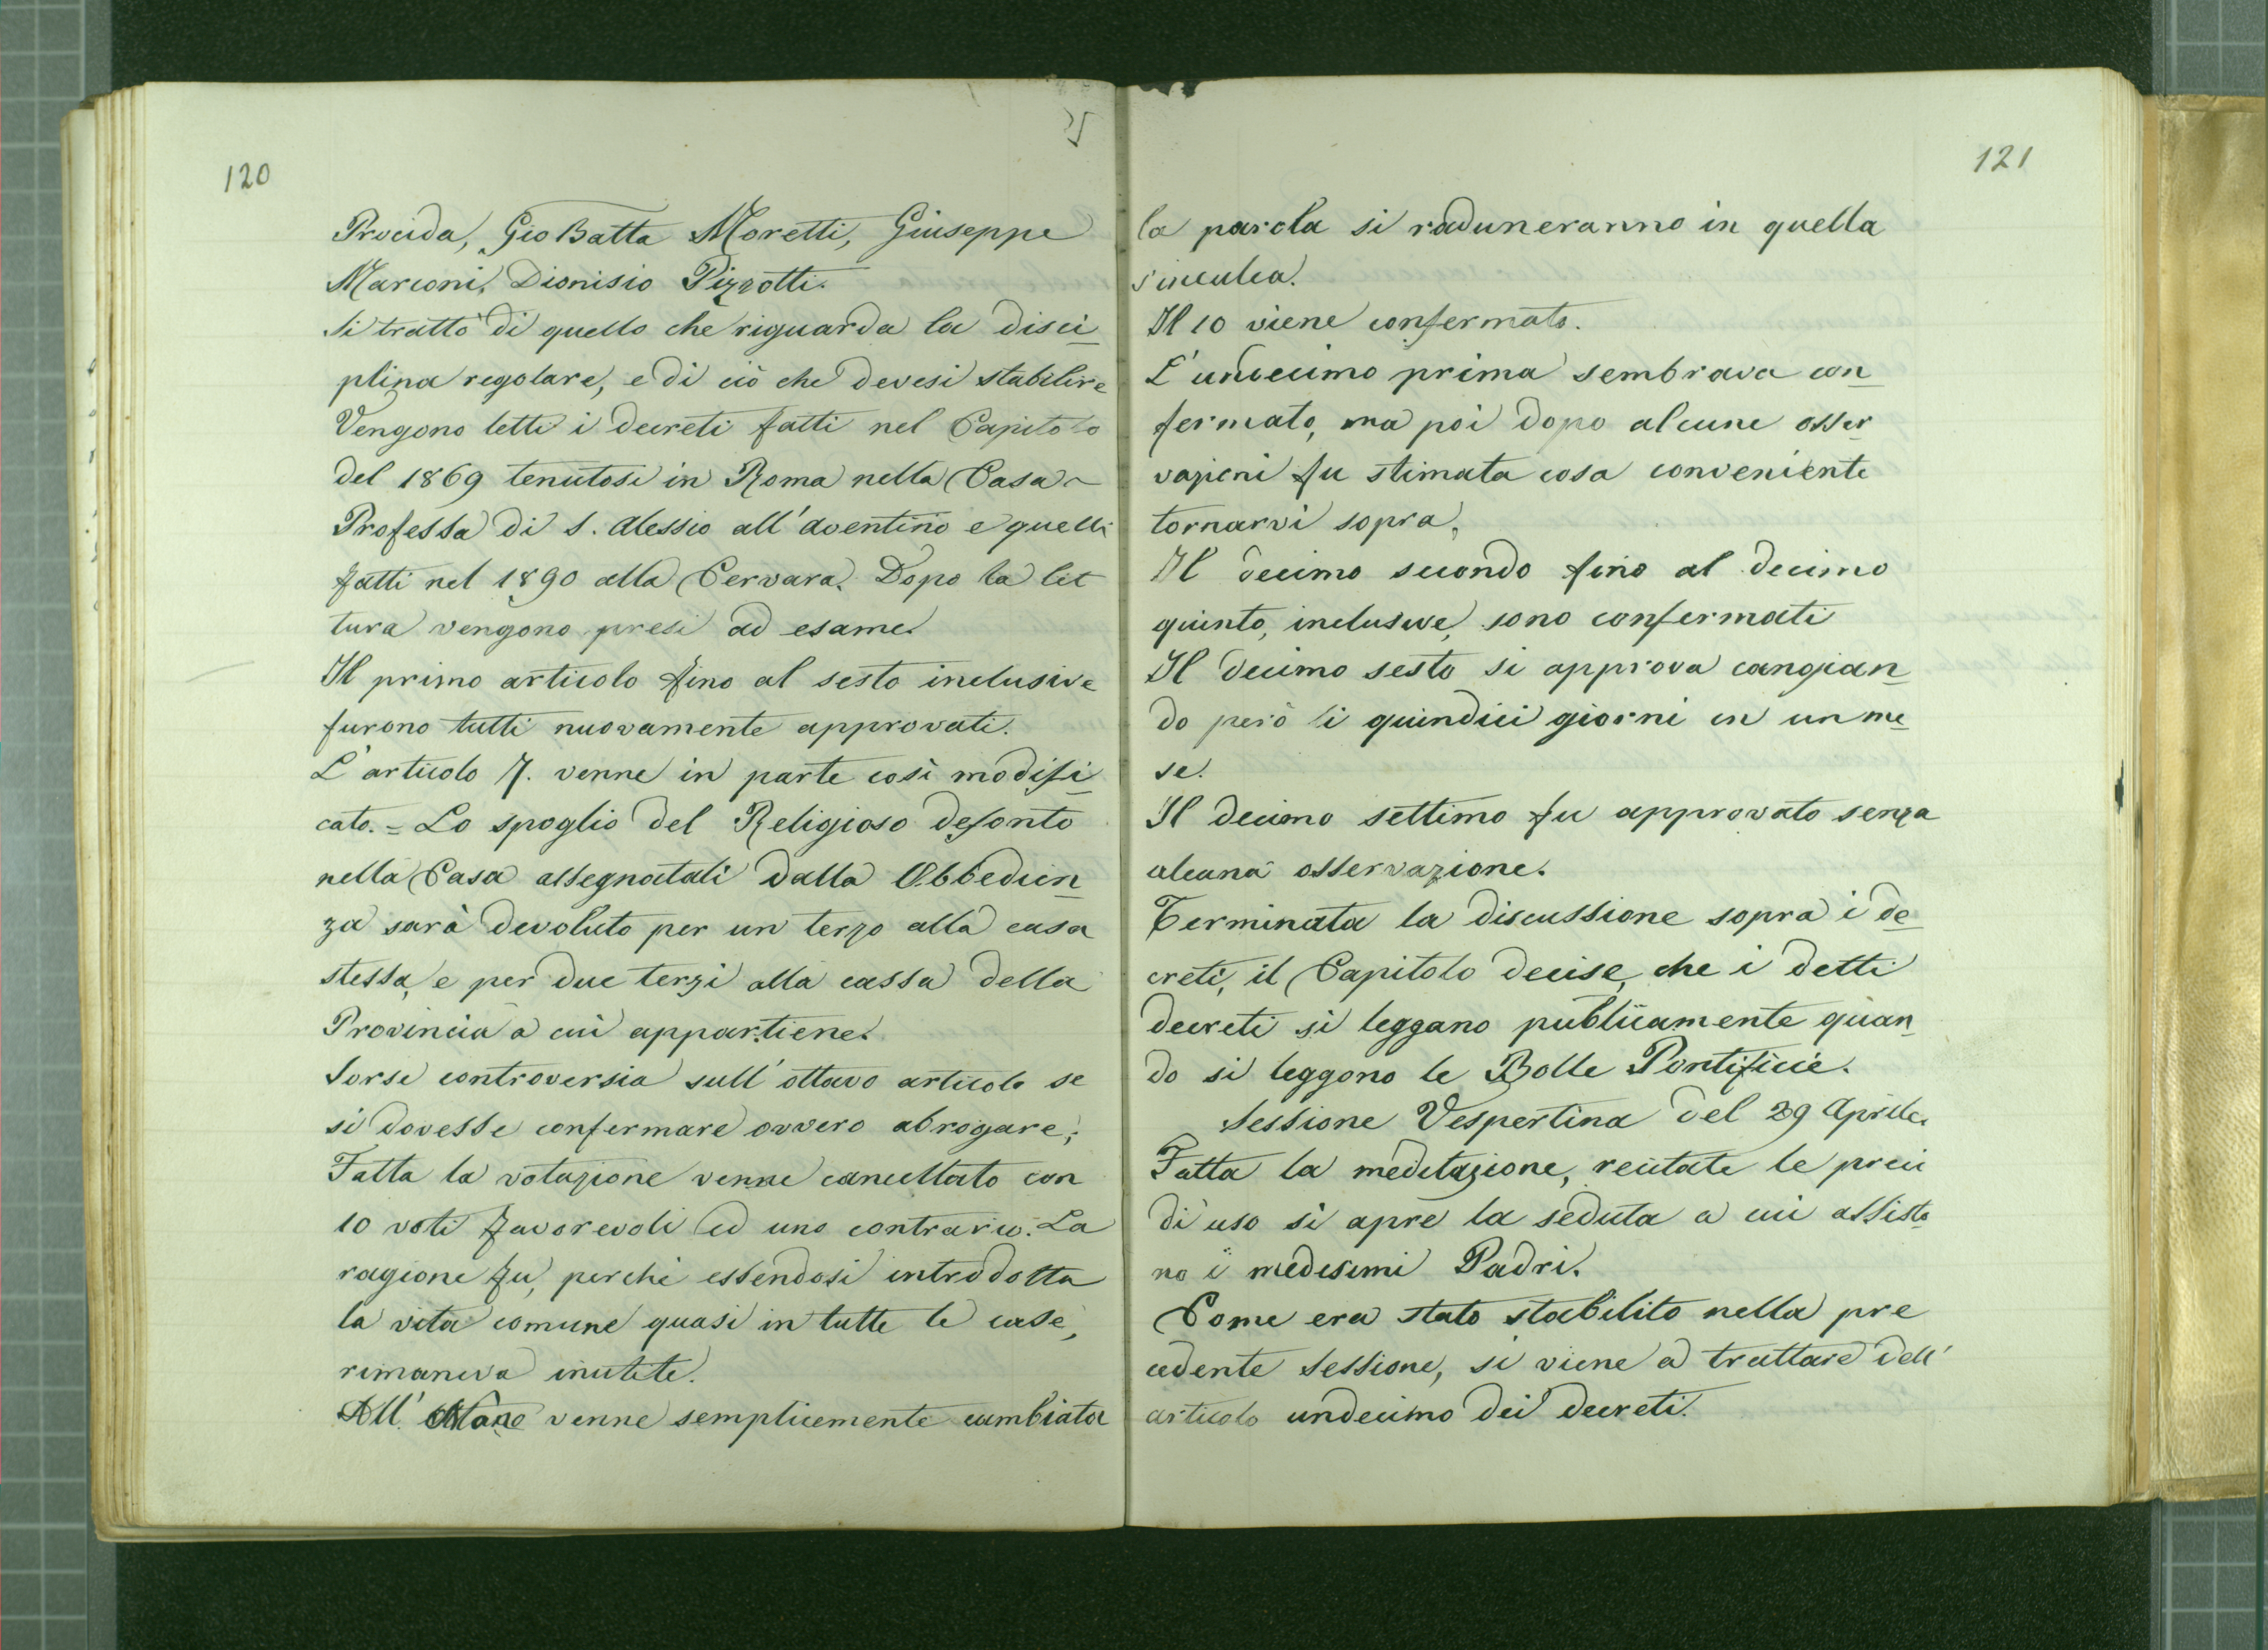 120
Procida, Gio Batta Moretti, Giuseppe
Marconi, Dionisio Pizzotti.
Si trattò di quello che riguarda la disci
plina regolare, e di ciò che devesi stabilire
Vengono letti i decreti fatti nel Capitolo
del 1869 tenutosi in Roma nella Casa
Professa di S. Alessio all'Aventino e quelli
fatti nel 1890 alla Cervara. Dopo la let
tura vengono presi ad esame.
Il primo articolo fino al sesto inclusive
furono tutti nuovamente approvati.
L'articolo 7. venne in parte così modifi
cato. = Lo spoglio del Religioso defonto
nella Casa assegnatali dalla Obbedien
za sarà devoluto per un terzo alla casa
stessa, e per due terzi alla cassa della
Provincia a cui appartiene.
Sorse controversia sull'ottavo articolo se
si dovesse confermare ovvero abrogare;
Fatta la votazione venne cancellato con
10 voti favorevoli ed uno contrario. La
ragione fu, perchè essendosi introdotta
la vita comune quasi in tutte le case,
rimaneva inutile.
All' venne semplicemente cambiata
121
la parola si raduneranno in quella
sinculca.
Il 10 viene confermato.
L'undecimo prima sembrava con
fermato, ma poi dopo alcune osser
vazioni fu stimata cosa conveniente
tornarvi sopra.
Il decimo secondo fino al decimo
quinto, inclusive, sono confermati
Il decimo sesto si approva cangian
do però li quindici giorni in un me
se.
Il decimo settimo fu approvato senza
alcuna osservazione.
Terminata la discussione sopra i de
creti, il Capitolo decise, che i detti
decreti si leggano publicamente quan
do si leggono le Bolle Pontificie.
Sessione Vespertina del 29 Aprile.
Fatta la meditazione, recitate le preci
di uso si apre la seduta a cui assisto
no i medesimi Padri.
Come era stato stabilito nella pre
cedente sessione, si viene a trattare dell'
articolo undecimo dei decreti.